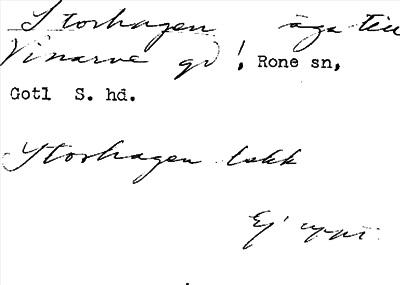 Storhagen äga till
Vinarve gd!, Rone sn,
Gotl S. hd.
Storhagen lokk
Ej uppt